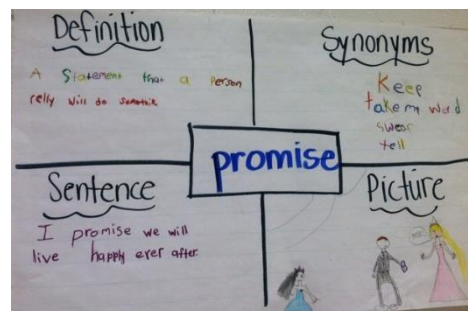 Definition
A Statement that a Person
relly will do somthin
Synonyms
Keep
take my word
swear
tell
promise
Sentence
I promise we will
live happly ever after.
Picture